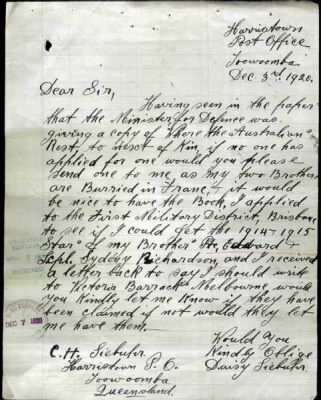 Harristown
Post Office
Toowoomba
Dec. 3rd 1920.
Dear Sir,
Having seen in the paper
that the Minister for Defence was
giving a copy of "Where the Australian's
Rest", to next of Kin, if no one has
applied for one would you please
send one to me, as my two Brothers
are Burried in France, & it would
be nice to have the Book, I applied
to the First Military District, Brisbane
to see if I could get the 1914-1915
Star of my Brothers Edward &
Sydney Richardson, and I received
a letter back to say I should write
to Victoria Barracks Melbourne, would
you Kindly let me Know if they have
been claimed if not would they let
me have them.
Would You
Kindly Oblige
Daisy Siebuhr
C. H. Siebuhr
Harristown P. O.
Toowoomba
Queensland.
DEC 7 1920